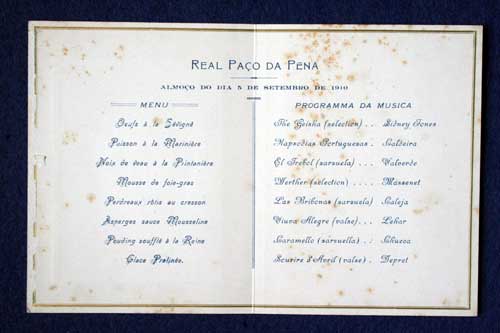 REAL PAÇO DA PENA
ALMOÇO DO DIA 5 DE SETEMBRO DE 1910
MENU
Oeufs à la Sévigné
Poisson à la Marinière
Noix de veau à la Printanière
Mousse de foie-gras
Perdreaux rôtis au cresson
Asperges sauce Mousseline
Pouding soufflé à la Reine
Glace Pralinée.
PROGRAMMA DA MUSICA
The Geisha (selection) . . Sidney Jones
Rapsodias Portuguesas . Caldeira
El Trebol (sarsuela) . . . Valverde
Werther (selection) . . . . Massenet
Las Bribonas (sarsuela) Calleja
Viuva Alegre (valse) . . . Lehar
Caramello (sarsuella) . .
Sourire d'Avril (valse) . Depret